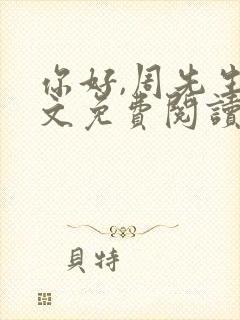 你好,周先生
文免費閱讀
貝特